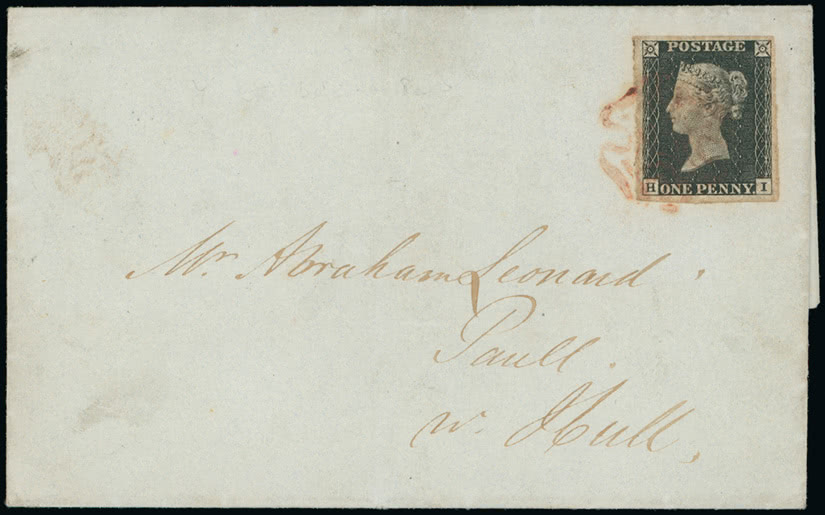 POSTAGE
H ONE PENNY. I
Mr Abraham Leonard
Paull.
nr. Hull,